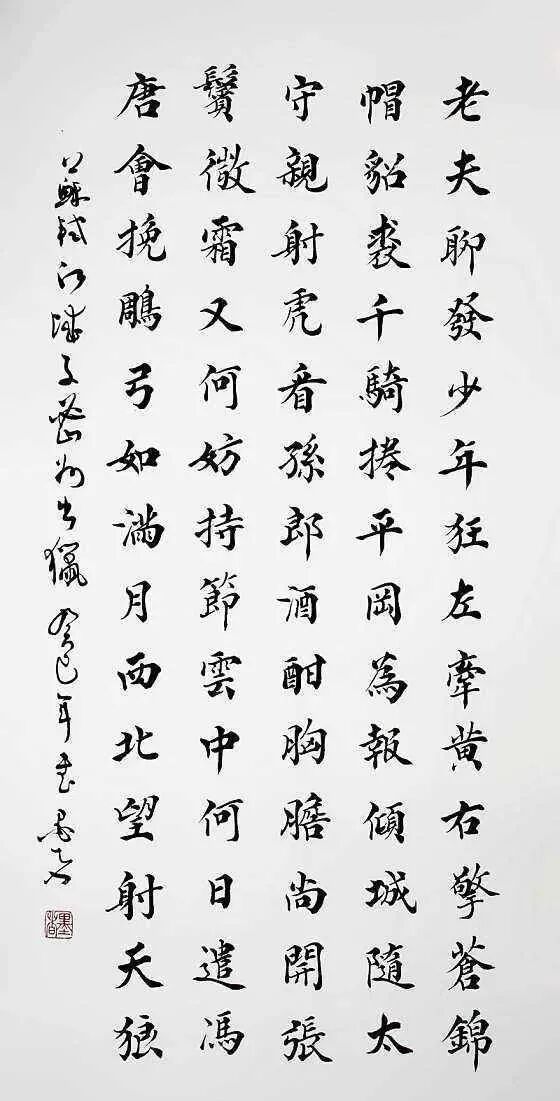 老夫聊發少年狂左牽黄右擎蒼錦
帽貂裘千騎捲平岡為報傾城隨太
守親射虎看孫郎酒酣胸膽尚開張
鬢微霜又何妨持節雲中何日遣馮
唐會挽鵰弓如滿月西北望射天狼
蘇軾江城子密州出獵 癸巳年書